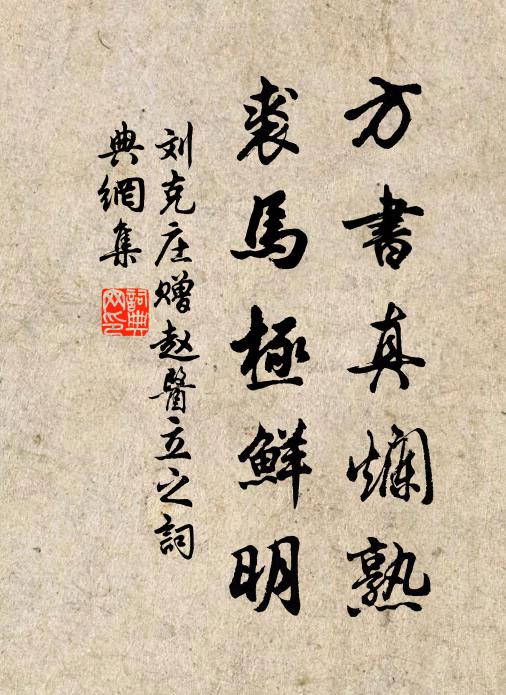 方書真爛熟
裘馬極鮮明
刘克庄赠赵醫立之詞
典網集
詞典網印